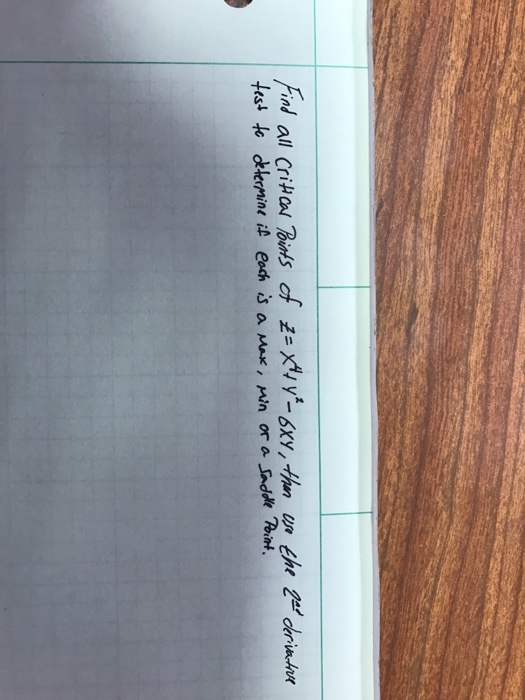 Find all Critical Points of z = x⁴+y²-6xy, then use the 2nd derivative
test to determine if each is a max, min or a saddle Point.